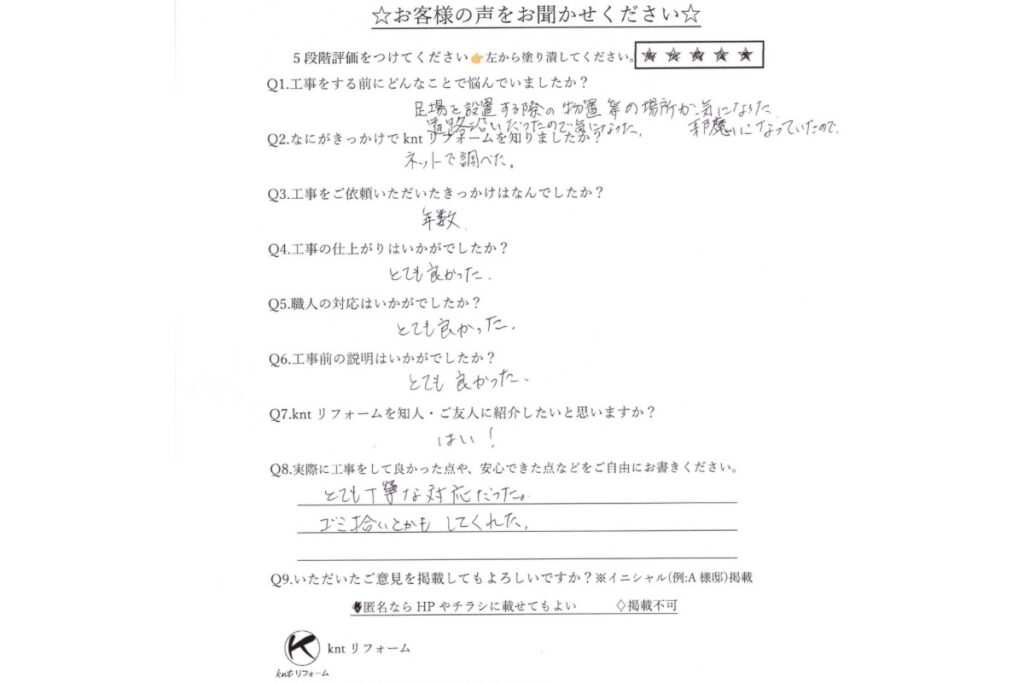 ☆お客様の声をお聞かせください☆
5段階評価をつけてください👉左から塗り潰してください。★★★★★
Q1.工事をする前にどんなことで悩んでいましたか?
足場を設置する際の物置等の場所が気になった
道路沿いだったので気になった。 邪魔になっていたので、
Q2.なにがきっかけでkntリフォームを知りましたか?
ネットで調べた。
Q3.工事をご依頼いただいたきっかけはなんでしたか?
年数。
Q4.工事の仕上がりはいかがでしたか?
とても良かった。
Q5.職人の対応はいかがでしたか?
とても良かった。
Q6.工事前の説明はいかがでしたか?
とても良かった。
Q7.kntリフォームを知人・ご友人に紹介したいと思いますか?
はい!
Q8.実際に工事をして良かった点や、安心できた点などをご自由にお書きください。
とても丁寧な対応だった。
ゴミ拾いとかもしてくれた。
Q9.いただいたご意見を掲載してもよろしいですか?※イニシャル(例:A様邸)掲載
◆匿名ならHPやチラシに載せてもよい ◇掲載不可
kntリフォーム
kntリフォーム